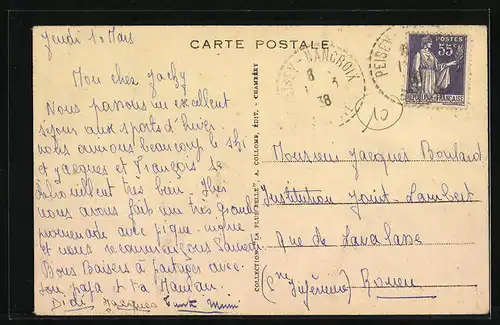 CARTE POSTALE
Jeudi 1 Mars
Mon cher Jacky
Nous passons un excellent
séjour aux sports d'hiver
nous aimons beaucoup le ski
et Jacques et François se
débrouillent très bien. Hier
nous avons fait une très grande
promenade avec pique-nique
et nous recommençons Samedi
Bons Baisers à partager avec
ton papa et ta Maman.
Didi Jacques
COLLECTION "LA PLUS BELLE" A. COLLOMB, ÉDIT. - CHAMBÉRY
PEISEY-NANCROIX
8
3
38
PEISEY-
POSTES
55c
REPUBLIQUE FRANÇAISE
10
Monsieur Jacques Boulard
Institution Joint-Lambert
Rue de Lavalasse
(Sne Inférieure) Rouen